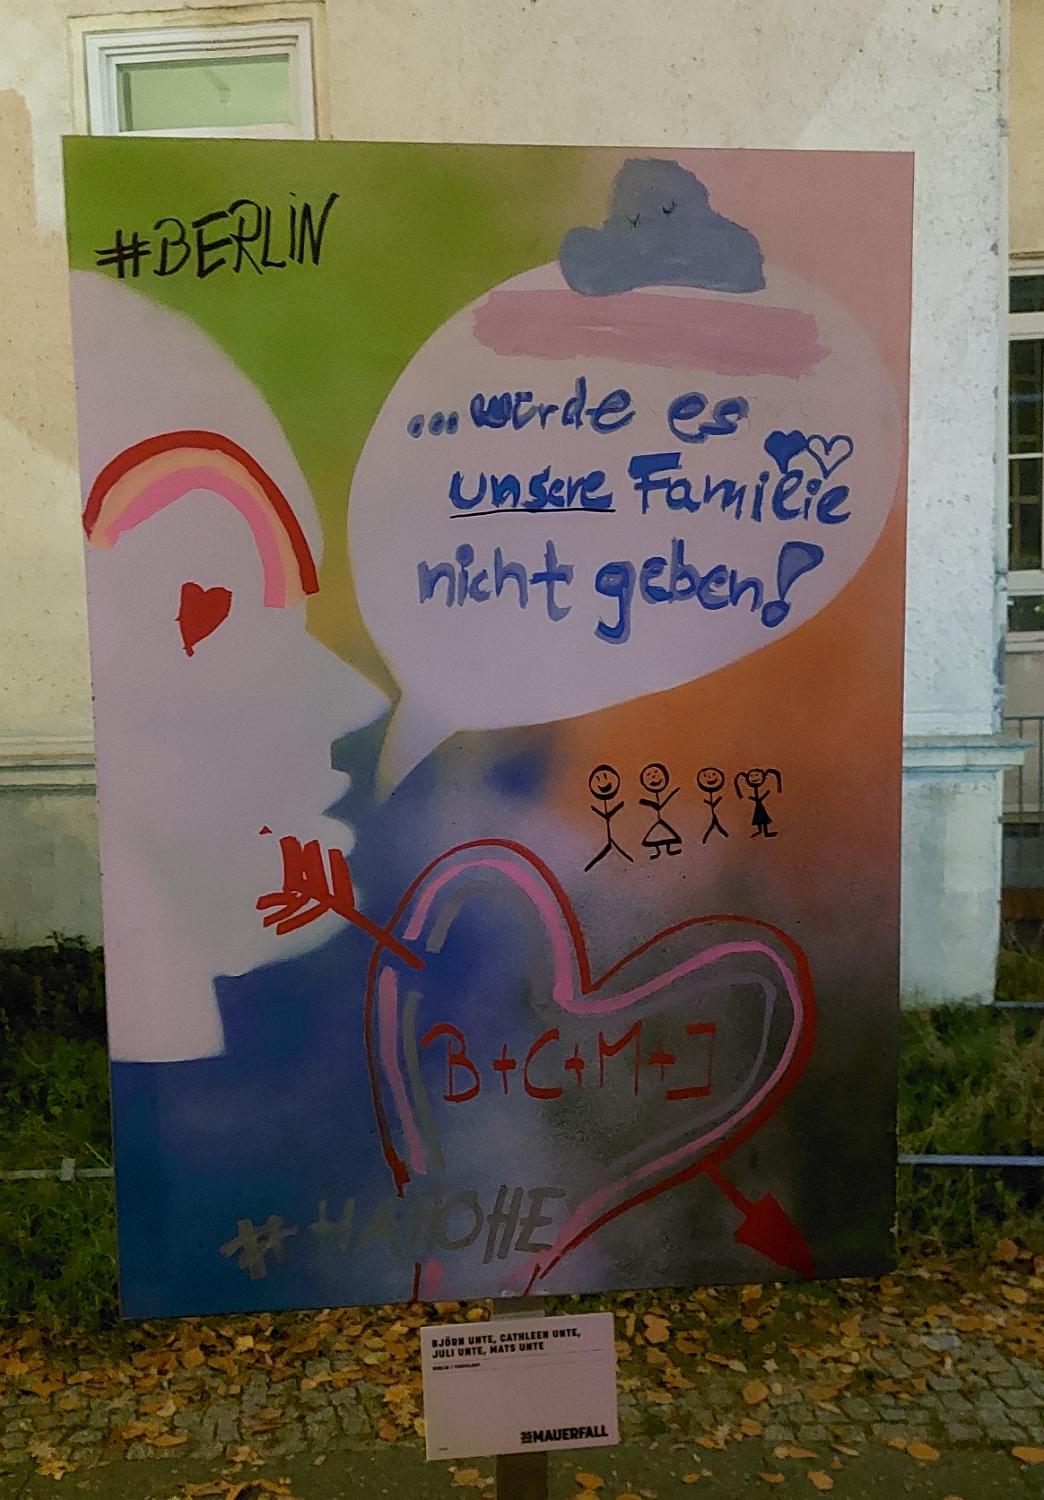 #BERLIN
...würde es
unsere Familie
nicht geben!
B+C+M+J
#HAHOHE
BJÖRN UNTE, CATHLEEN UNTE,
JULI UNTE, MATS UNTE
35 MAUERFALL